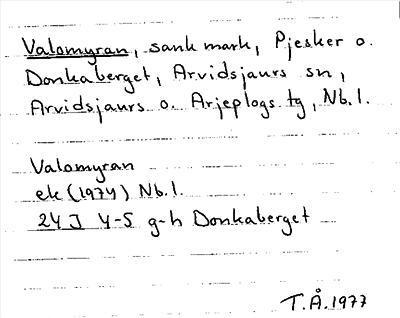 Valomyran, sank mark, Pjesker o.
Donkaberget, Arvidsjaurs sn,
Arvidsjaurs o. Arjeplogs tg, Nb. l.
Valomyran
ek (1974) Nb. l.
24 J 4-5 g-h Donkaberget
T.Å. 1977